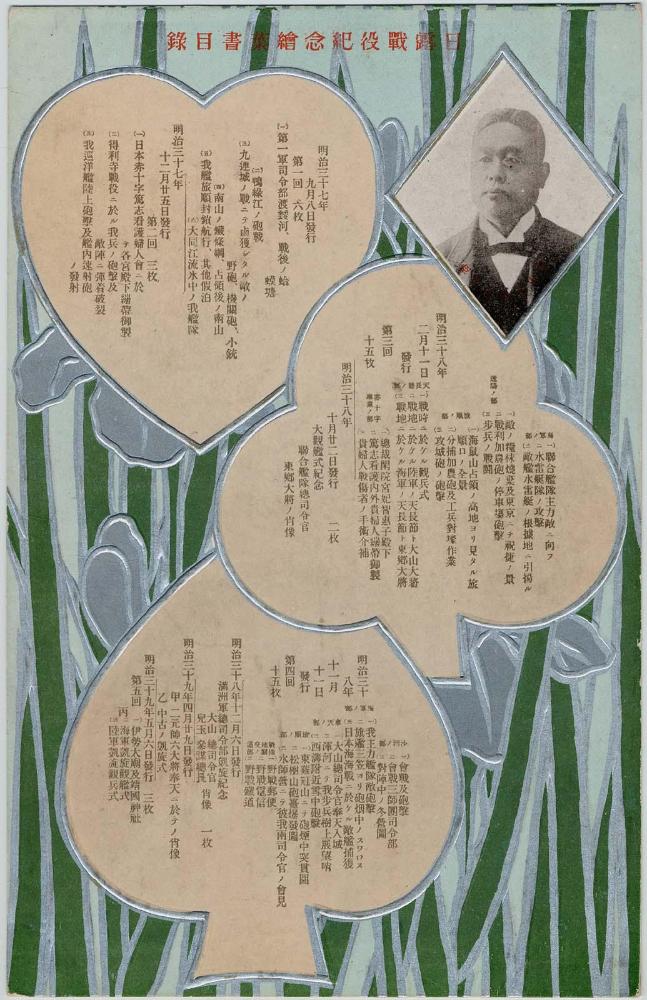 日露戰役紀念繪葉書目錄
明治三十七年
九月八日發行
第一回 六枚
(一)第一軍司令部渡韓河、戰後ノ蛤
蟆塘
(二)鴨綠江ノ砲戰
(三)九連城ノ戰ニテ鹵獲シタル敵ノ
野砲、機關砲、小銃
(四)南山ノ鐵條網、占領後ノ南山
(五)我艦旅順封鎖航行、其他假泊
(六)大同江流氷中ノ我艦隊
明治三十七年
十二月廿五日發行
第二回 三枚
(一)日本赤十字篤志看護婦人會ニ於
テ各宮殿下繃帶御製
(二)得利寺戰役ニ於ル我兵ノ砲擊及
敵陣ニ彈着破裂
(三)我巡洋艦陸上砲擊及艦內速射砲
ノ發射
海軍ノ部
(一)聯合艦隊主力敵ニ向フ
(二)水雷艇隊ノ攻擊
(三)敵艦水雷艇ノ根據地ニ引揚ル
遼陽ノ部
(一)敵ノ糧秣燒棄及東京ニテ祝捷ノ景
(二)戰利加農砲ノ停車場砲擊
(三)步兵ノ戰鬪
旅順ノ部
(一)海鼠山占領ノ高地ヨリ見タル旅
順口ノ全景
(二)分捕加農砲及工兵對壕作業
(三)攻城砲ノ砲擊
明治三十八年
二月十一日
發行
第三回
十五枚
天長節ノ部
(一)戰時ニ於ケル觀兵式
(二)戰地ニ於ケル陸軍ノ天長節ト大山大將
(三)戰地ニ於ケル海軍ノ天長節ト東鄕大將
赤十字
事業ノ部
(一)總裁閑院宮妃智惠子殿下
(二)篤志看護內外貴婦人繃帶御製
(三)貴婦人戰傷者ノ手術介補
明治三十八年
十月廿二日發行 二枚
大觀艦式紀念
聯合艦隊總司令官
東鄕大將ノ肖像
沙河ノ部
(一)會戰及砲擊
(二)會戰三師團司令部
(三)對陣中ノ冬營圖
海軍ノ部
(一)我主力艦隊敵砲擊
(二)旅艦三笠ヨリ砲烟中ノスワロス
(三)日本海海戰ニ於ケル敵艦捕獲
奉天ノ部
(一)大山總司令官奉天入城
(二)渾河ニテ我步兵樹上展望哨
(三)西溝附近雪中砲擊
旅順ノ部
(一)東雞冠山ニテ砲煙中突貫圖
(二)松樹山砲臺爆發圖
(三)水師營ニテ彼我兩司令官ノ會見
(一)野戰郵便
(二)野戰電信
(三)野戰鐵道
明治三十
八年
十一月
十一日
發行
第四回
十五枚
明治三十八年十二月六日發行
滿洲軍總司令部凱旋紀念
大山總司令官
兒玉參謀總長
肖像 一枚
明治三十九年四月廿九日發行
甲 一元帥六大將奉天ニ於テノ肖像
乙 中古ノ凱旋式
明治三十九年五月六日發行 三枚
第五回
(一)伊勢大廟及靖國神社
(二)海軍凱旋觀艦式
(三)陸軍凱旋觀兵式
丙